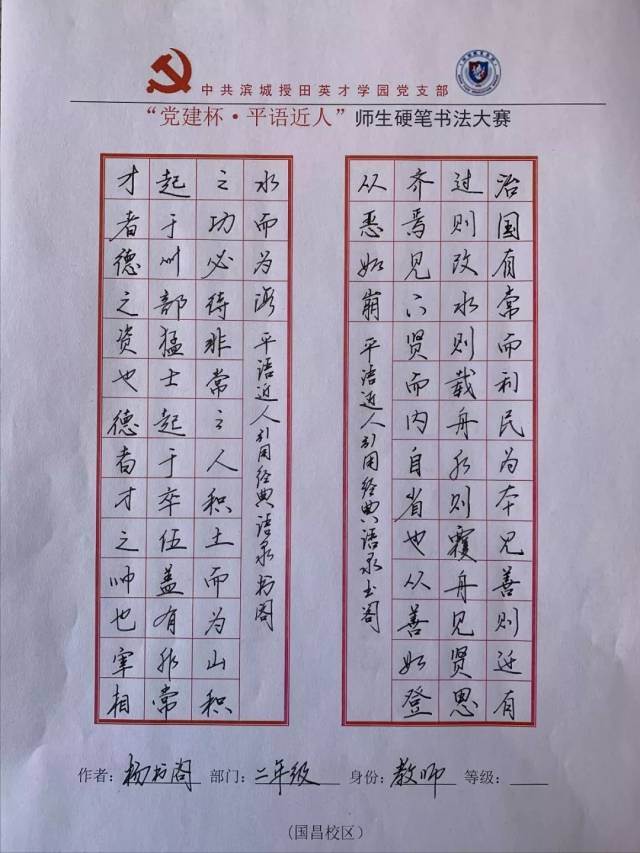 中共滨城授田英才学园党支部
“党建杯·平语近人”师生硬笔书法大赛
治国有常而利民为本见善则迁有
过则改水则载舟水则覆舟见贤思
齐焉见不贤而内自省也从善如登
从恶如崩 平语近人引用经典语录书阁
才者德之资也德者才之帅也宰相
起于州部猛士起于卒伍盖有非常
之功必待非常之人积土而为山积
水而为海 平语近人引用经典语录书阁
作者：杨书阁 部门：二年级 身份：教师 等级：
（国昌校区）